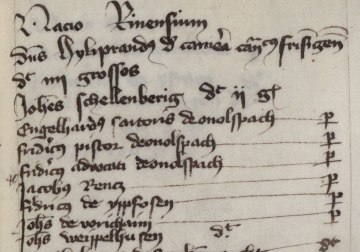 Nacio Rinensium
dns hyliprandus de camera can9cus frisigen
dt iiii grossos
Johes schellenberig dt ii gl
Engelhardus sartoris deonolspach p
fridicus pistor deonolspach p
fridicus advocati deonolspach p
Jacobus Rencz p
fridricus de ypfofen p
Johs de vorichaim p
Johs weippelhusen dt